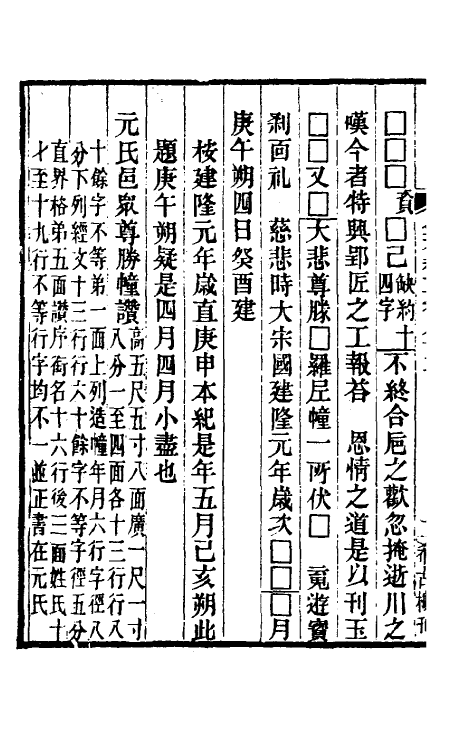 □□□貟□己缺約十四字不終合巵之歡忽掩逝川之
嘆今者特興郢匠之工報荅 恩情之道是以刊玉
□□又□大悲尊勝□羅尼幢一所伏□ 䰟遊寶
刹面礼 慈悲時大宋國建隆元年歳次□□□月
庚午朔四日癸酉建
桉建隆元年歳直庚申本紀是年五月己亥朔此
題庚午朔疑是四月四月小盡也
元氏邑眾尊勝幢讚高五尺五寸八面廣一尺一寸
八分一至四面各十三行行八
十餘字不等弟一面上列造幢年月六行字徑八
分下列經文十三行行六十餘字不等字徑五分
直界格弟五面讚序銜名十六行後三面姓氏十
才至十九行不等行字均不一並正書在元氏